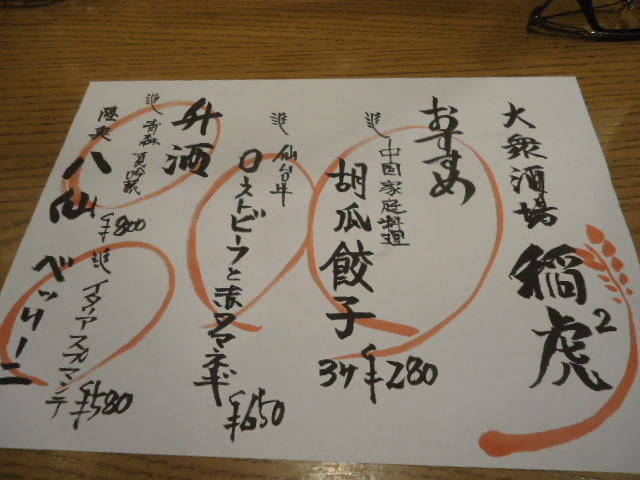 大衆酒場
稲虎²
おすすめ
進 中国家庭料理
胡瓜餃子
3ケ ¥280
進 仙台牛
ローストビーフと赤タマネギ
¥650
升酒
進 青森 夏吟醸
陸奥 八仙
¥800
進 イタリアスプマンテ
ベッリーニ
¥580